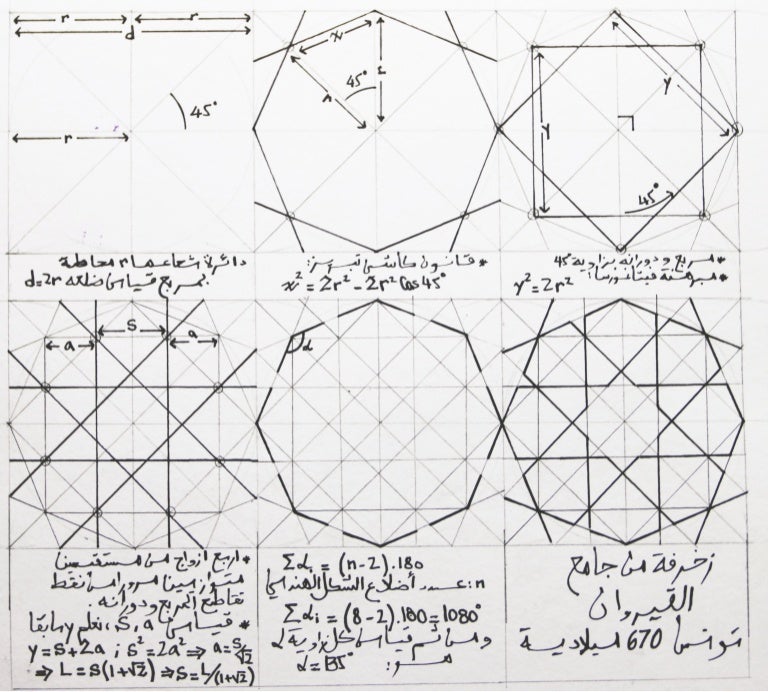 r
r
d
r
45°
x
r
r
45°
y
y
45°
دائرة شعاعها r محاطة
بمربع قياس ضلعه d=2r
* قانون كاشي تبريز:
x² = 2r² - 2r² Cos 45°
* مربع ودورانه بزاوية 45°
* مبرهنة فيتاغورس:
y² = 2r²
s
a
a
α
* اربع ازواج من مستقيمين
متوازيين مرورا من نقط
تقاطع المربع ودورانه.
* قياس a, S, نعلم y سابقا
y = S + 2a ; s² = 2a² ⇒ a = S/√2
⇒ L = S(1+√2) ⇒ S = L/(1+√2)
Σαi = (n-2).180
n: عدد أضلاع الشكل الهندسي
Σαi = (8-2).180 = 1080°
ومن ثم قياس كل زاوية α
هو: α = 135°
زخرفة من جامع
القيروان
تونس 670 ميلادية